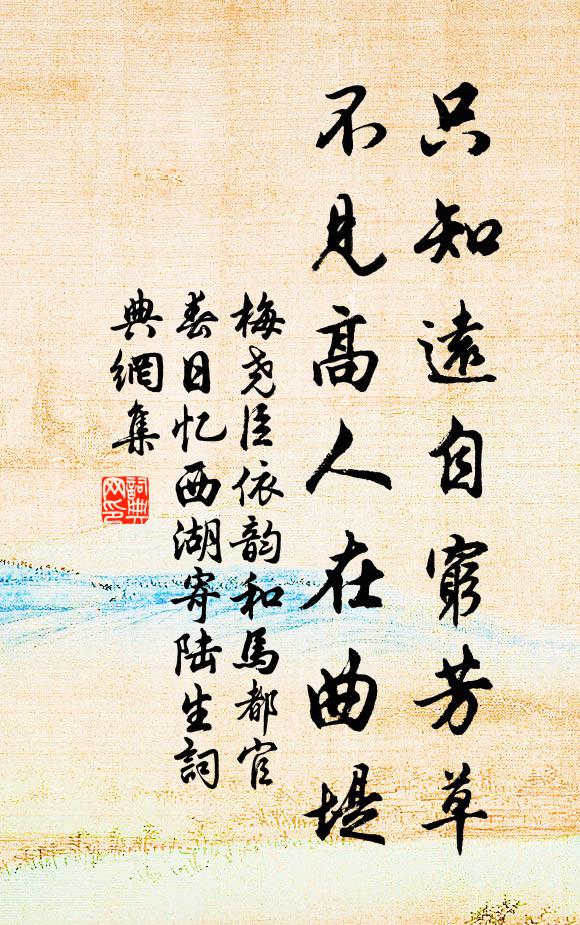 只知遠自窮芳草
不見高人在曲堤
梅尧臣依韵和馬都官
春日忆西湖寄陆生詞
典網集
詞典網印